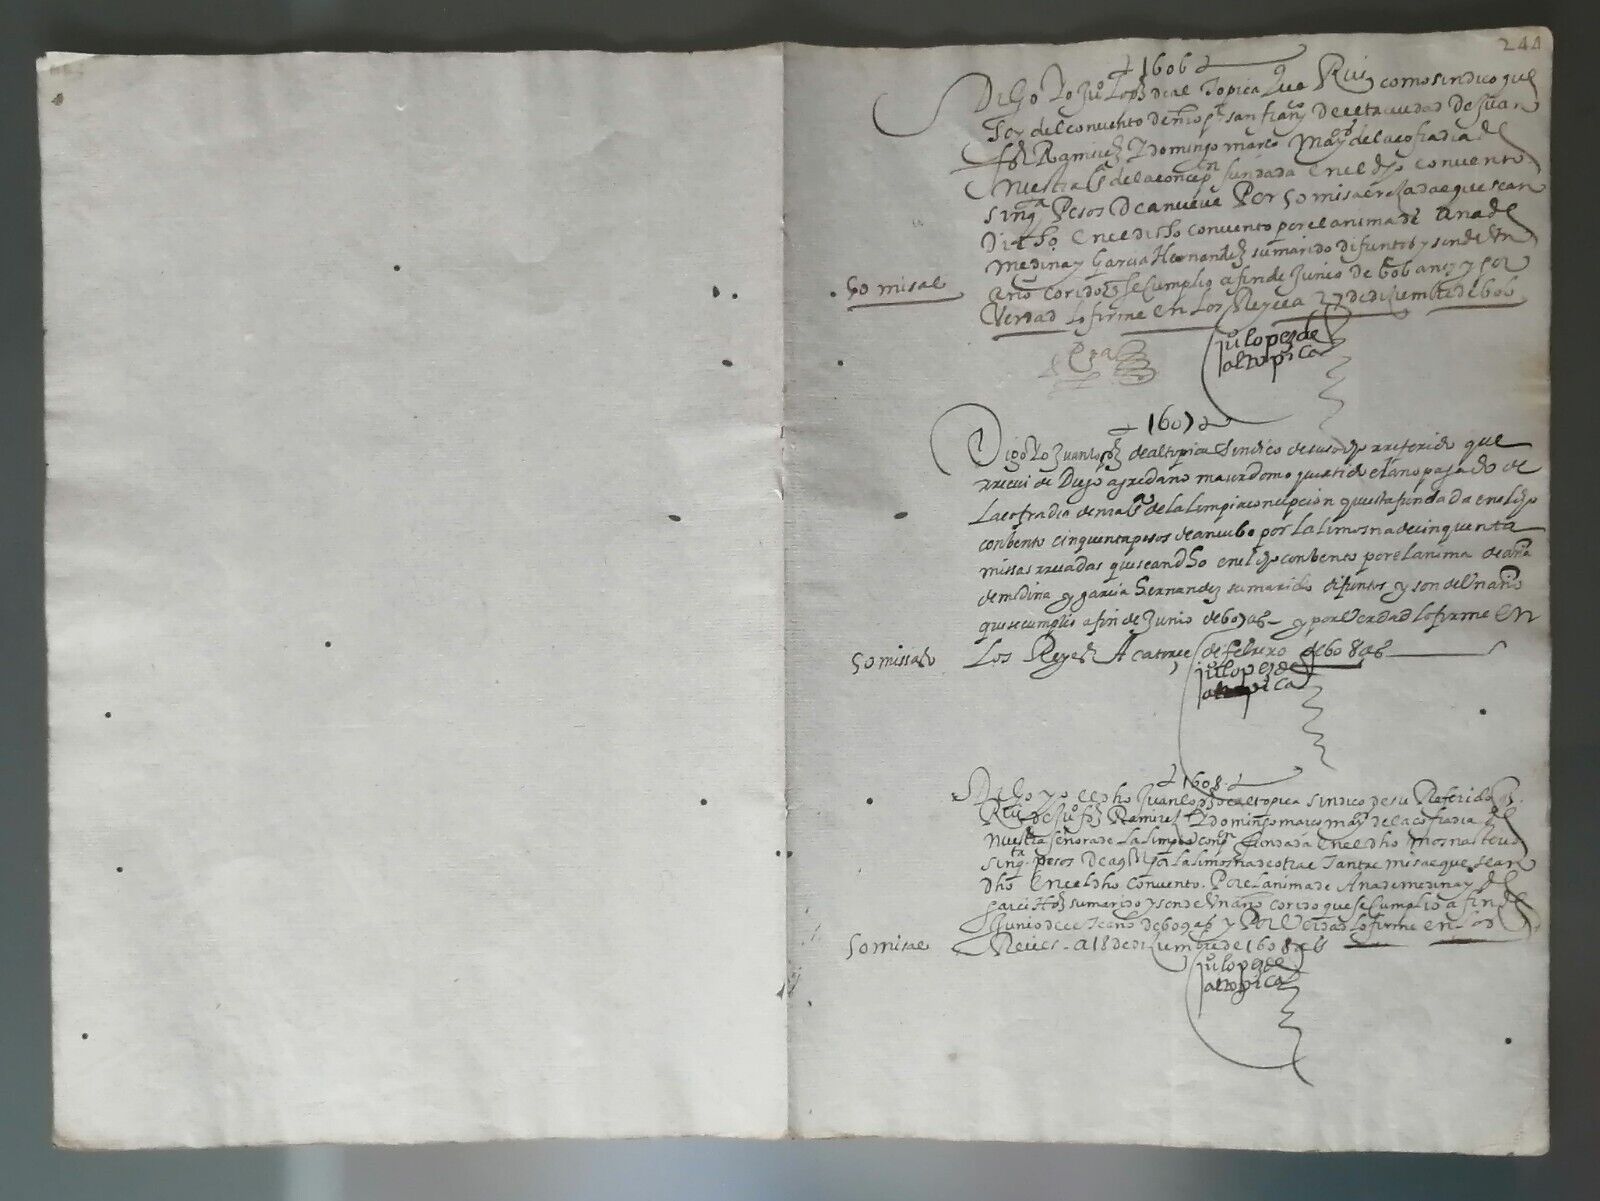 244
+ 1606 +
Digo Yo Juº Lopz de al Topica que Rui como sindico que
soy del convento de nro pe san franco De esta ciudad de Juan
frz Ramirez y Domingo marco mayo de la cofradia de
nuestra sa de la concepn fundada en el dho convento
sinqta Pesos De a nueve Por 50 misas rezadas que sean
Dicho en el dicho convento por el anima de Ana de
medina y Garcia Hernandez su marido difuntos y son de Un
año corido q se cumplio a fin de Junio de 606 anos y por
Verdad lo firme en Los Reyes a 27 de diziembre de 606
50 misas
juº lopez de
altopica
+ 1607 +
Digo Yo Juan lopz de altopica Sindico de suso dho rreferido que
rrecivi de Diego agredano mayordomo que a sido el año pasado de
La cofradia de nra sa de la limpia concepcion questa fundada en el dho
conbento cinquenta pesos de a nuebe por la limosna de cinquenta
missas rrezadas que se an dho en el dho conbento por el anima de ana
de medina y garcia Hernandez su marido difuntos y son del Un año
que se cumplio a fin de Junio de 607 as y por Verdad lo firme EN
50 missas Los Reyes A catorze de febrero de 608 as
juº lopez de
altopica
+ 1608 +
Digo yo el dho Juan lopz de altopica sindico de su Referido q
Rui de Juº frz Ramirez y Domingo marco mayo de la cofradia de
Nuestra señora de La limpia conpn fundada en el dho monasterio
sinqta pesos de a 9 Rs por la limosna de otras Tantas misas que sean
Dho En el dho convento Por el anima de Ana de medina y de
garci Hrz su marido y son de Un año corido que se cumplio a fin de
Junio deste Año de 609 as y Por Verdad lo firme en los
50 misas Reies a 18 de diziembre de 1608 as
juº lopez de
altopica